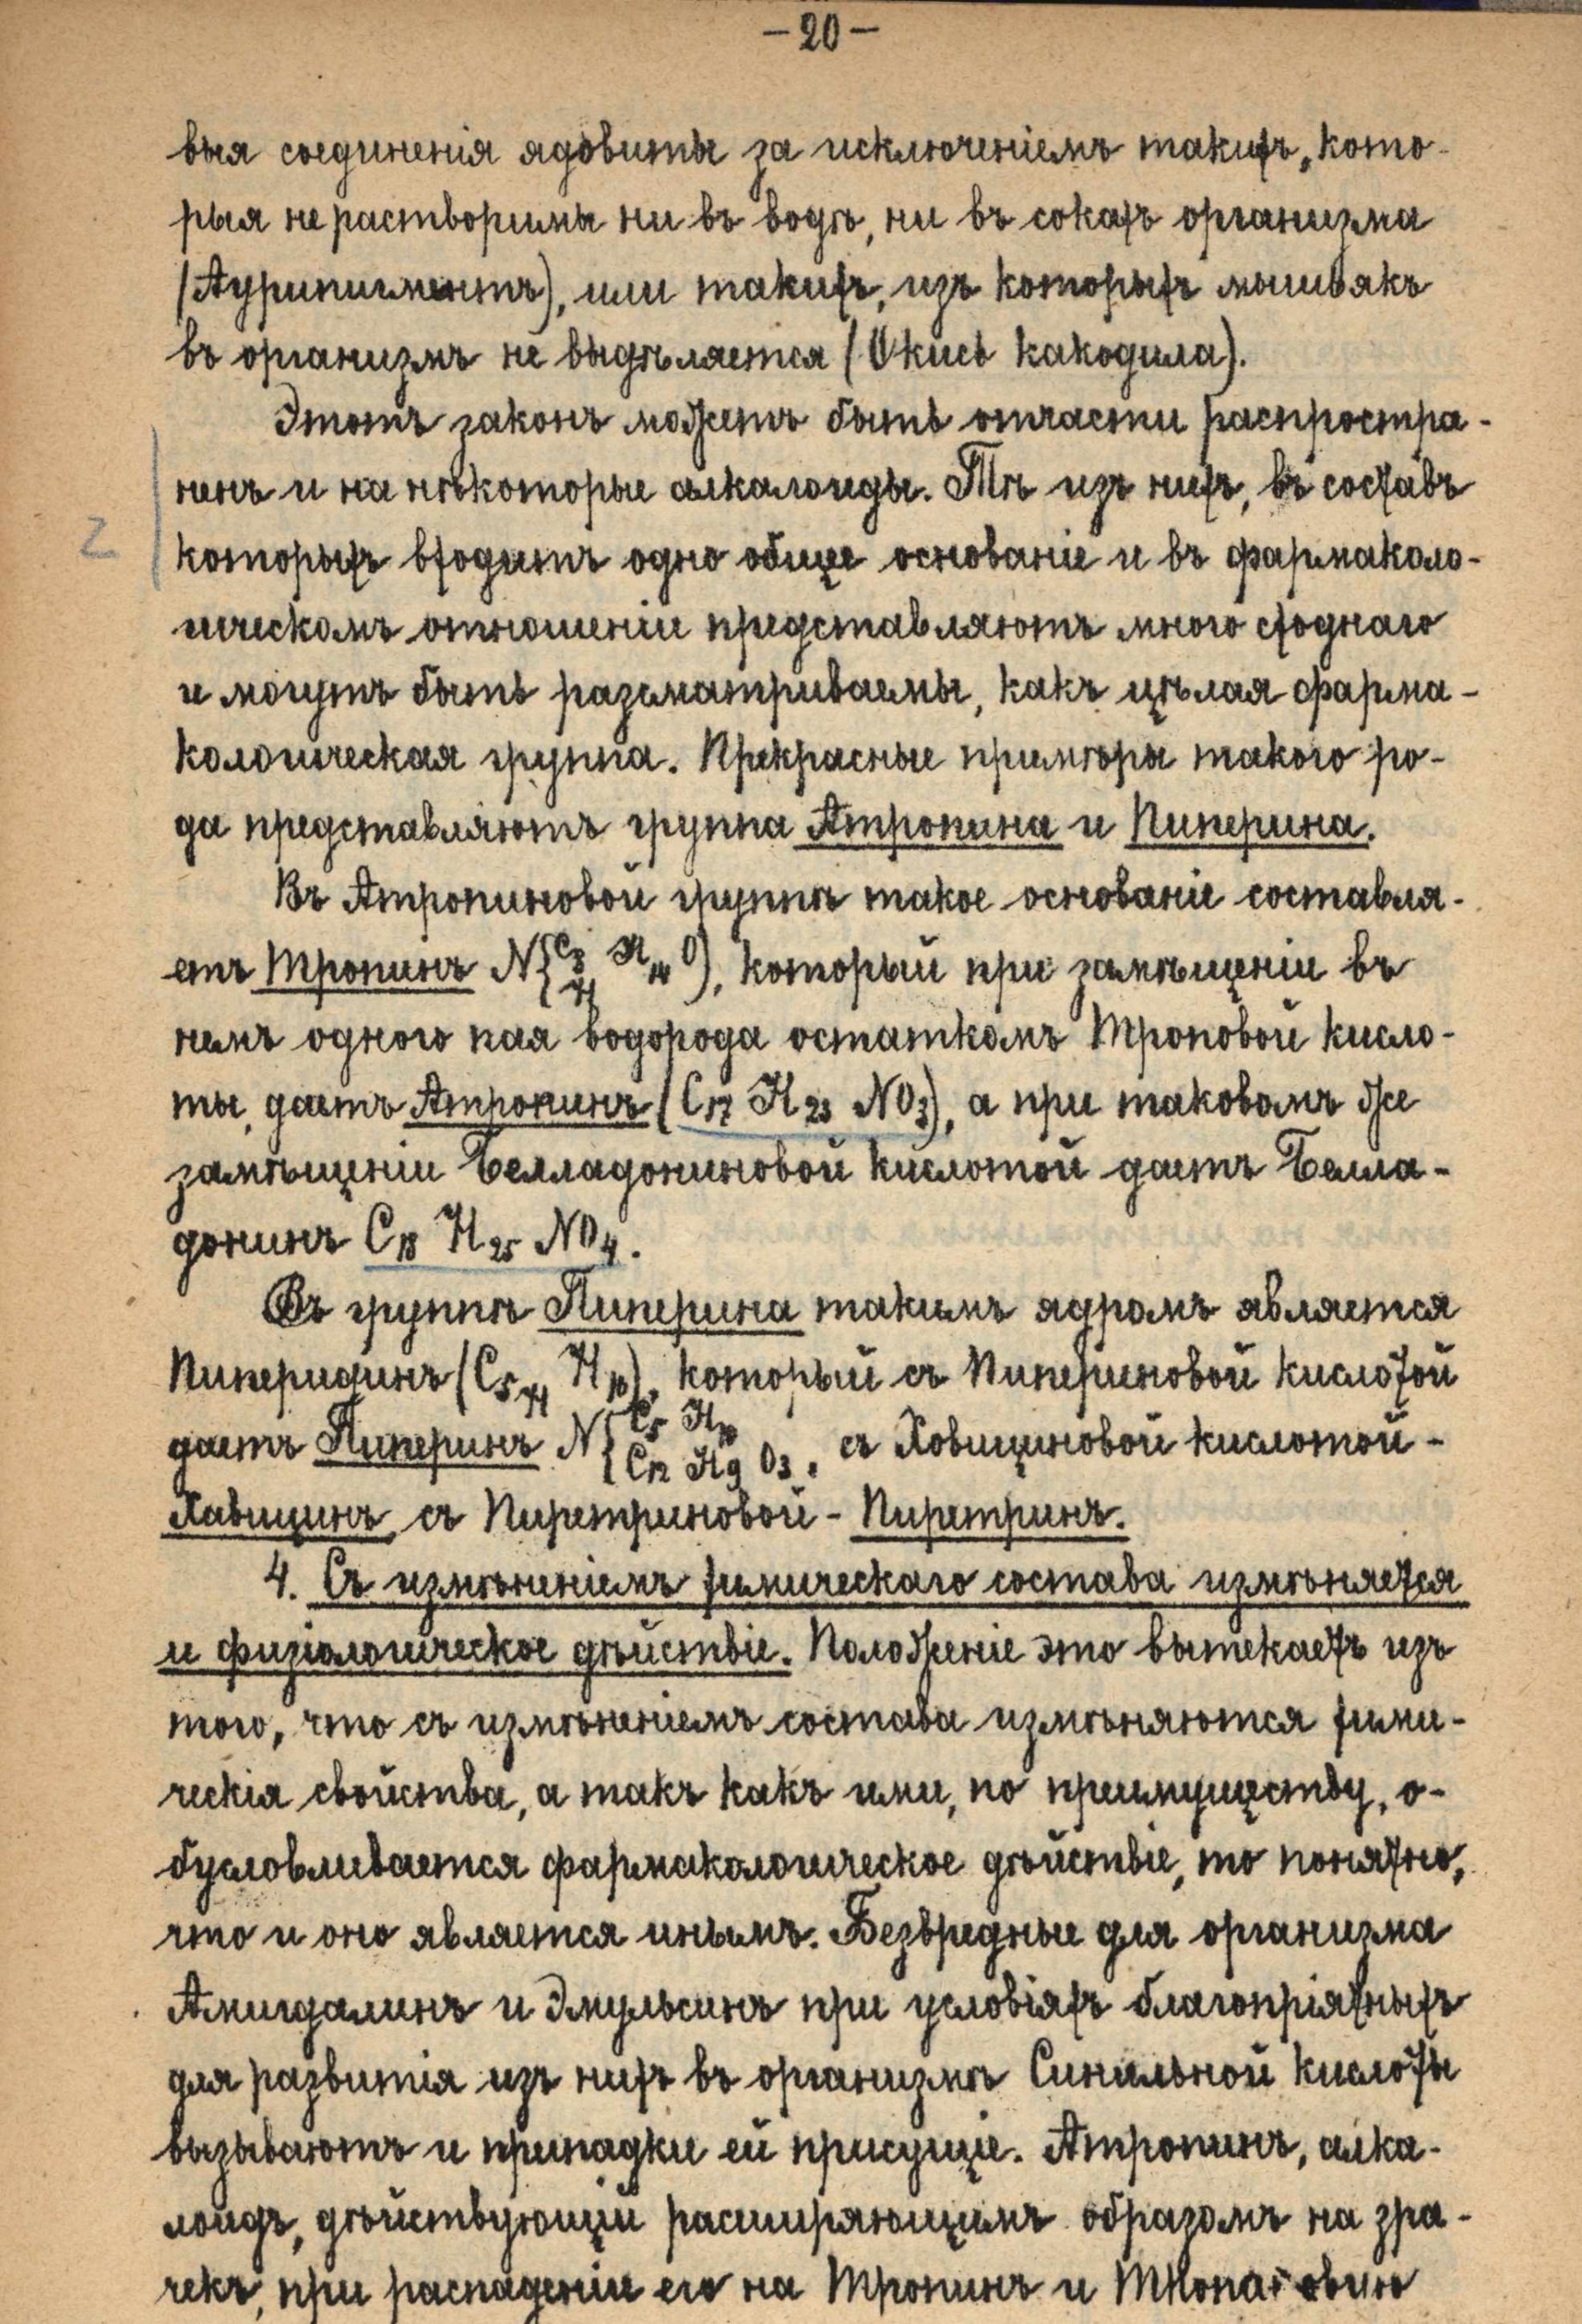 -20-
выя соединенія ядовиты за исключеніемъ такихъ, кото-
рыя не растворимы ни въ водѣ, ни въ сокахъ организма
(Аурипигментъ), или такихъ, изъ которыхъ мышьякъ
въ организмъ не выдѣляется (Окись какодила).
Этотъ законъ можетъ быть отчасти распростра-
ненъ и на нѣкоторые алкалоиды. Тѣ изъ нихъ, въ составъ
2
которыхъ входитъ одно общее основаніе и въ фармаколо-
гическомъ отношеніи представляютъ много сходнаго
и могутъ быть разсматриваемы, какъ цѣлая фарма-
кологическая группа. Прекрасные примѣры такого ро-
да представляютъ группа Атропина и Пиперина.
Въ Атропиновой группѣ такое основаніе составля-
етъ Тропинъ N{C8 H14 O H), который при замѣщеніи въ
немъ одного пая водорода остаткомъ Троповой кисло-
ты, даетъ Атропинъ (C17 H23 NO3), а при таковомъ же
замѣщеніи Белладониновой кислотой даетъ Белла-
донинъ C18 H25 NO4.
Въ группѣ Пиперина такимъ ядромъ является
Пиперидинъ (C5 H H10), который съ Пипериновой кислотой
даетъ Пиперинъ N{C5 H10 C12 H9 O3, съ Ховициновой кислотой-
Хавицинъ, съ Пиретриновой - Пиретринъ.
4. Съ измѣненіемъ химическаго состава измѣняется
и физіологическое дѣйствіе. Положеніе это вытекаетъ изъ
того, что съ измѣненіемъ состава измѣняются хими-
ческія свойства, а такъ какъ ими, по преимуществу, о-
бусловливается фармакологическое дѣйствіе, то понятно,
что и оно является инымъ. Безвредные для организма
Амигдалинъ и Эмульсинъ при условіяхъ благопріятныхъ
для развитія изъ нихъ въ организмѣ Синильной кислоты
вызываютъ и припадки ей присущіе. Атропинъ, алка-
лоидъ, дѣйствующій расширяющимъ образомъ на зра-
чекъ, при распаденіи его на Тропинъ и